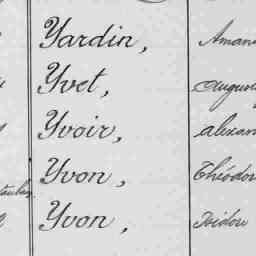 Yardin, Aman
Yvet, august
Yvoir, alexan
Yvon, Théodor
Yvon, Isidou